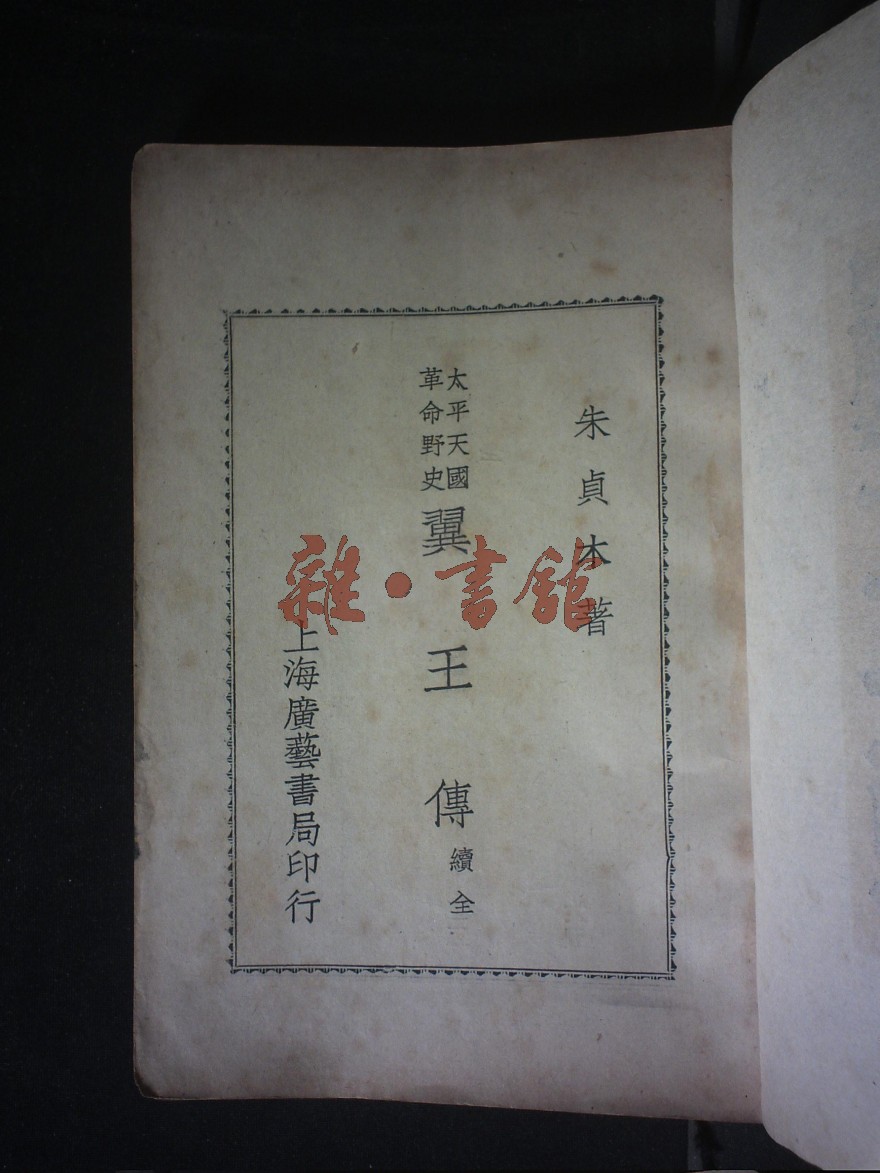 朱貞木著
太平天國
革命野史
翼王傳
續全
上海廣藝書局印行
雜·書館